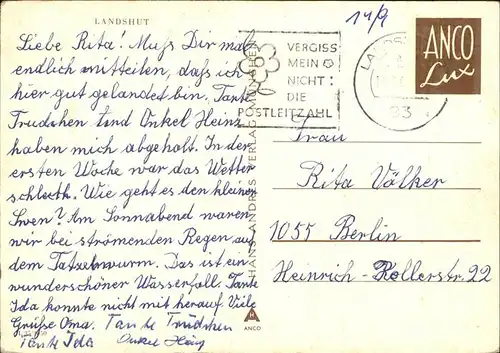 LANDSHUT
Liebe Rita! Muß Dir mal
endlich mitteilen, daß ich
hier gut gelandet bin. Tante
Trudchen und Onkel Heinz
haben mich abgeholt. In der
ersten Woche war das Wetter
schlecht. Wie geht es den kleinen
Swen? Am Sonnabend waren
wir bei strömenden Regen auf
dem Tatzelwurm. Das ist ein
wunderschöner Wasserfall. Tante
Ida konnte nicht mit herauf. Viele
Grüße Oma. Tante Trudchen
Tante Ida Onkel Heinz
HANS ANDRES VERLAG MÜNCHEN
ANCO
14/9
VERGISS
MEIN
NICHT:
DIE
POSTLEITZAHL
ANCO
Lux
Frau
Rita Völker
1055 Berlin
Heinrich-Rollerstr. 22